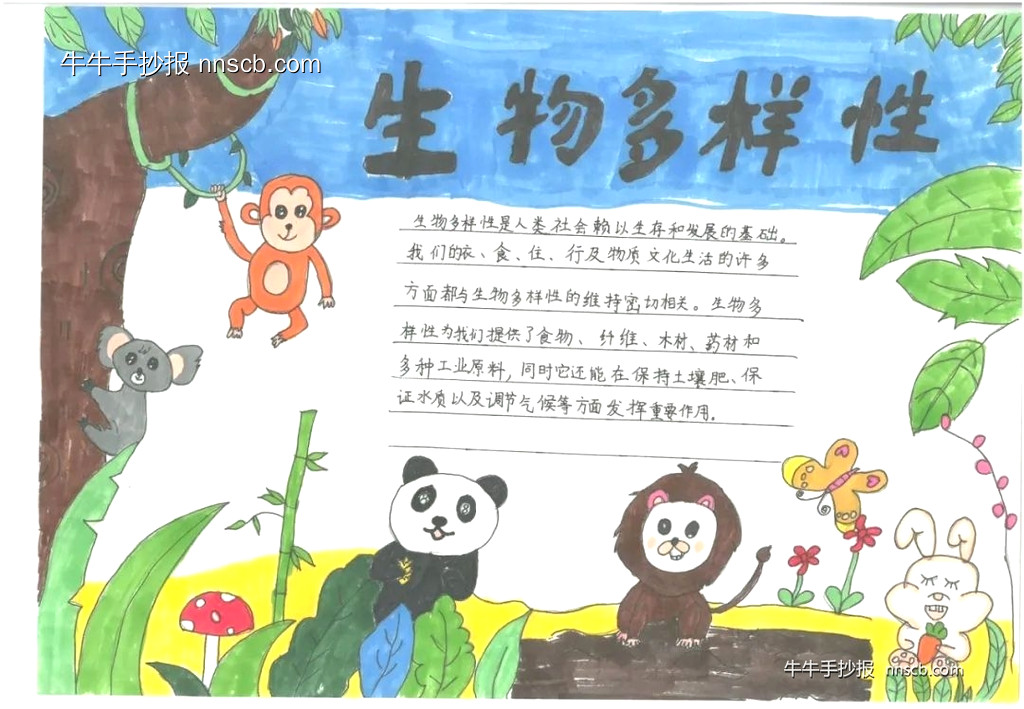 牛牛手抄报 nnscb.com
生物多样性
生物多样性是人类社会赖以生存和发展的基础。
我们的衣、食、住、行及物质文化生活的许多
方面都与生物多样性的维持密切相关。生物多
样性为我们提供了食物、纤维、木材、药材和
多种工业原料,同时它还能在保持土壤肥、保
证水质以及调节气候等方面发挥重要作用.
牛牛手抄报 nnscb.com